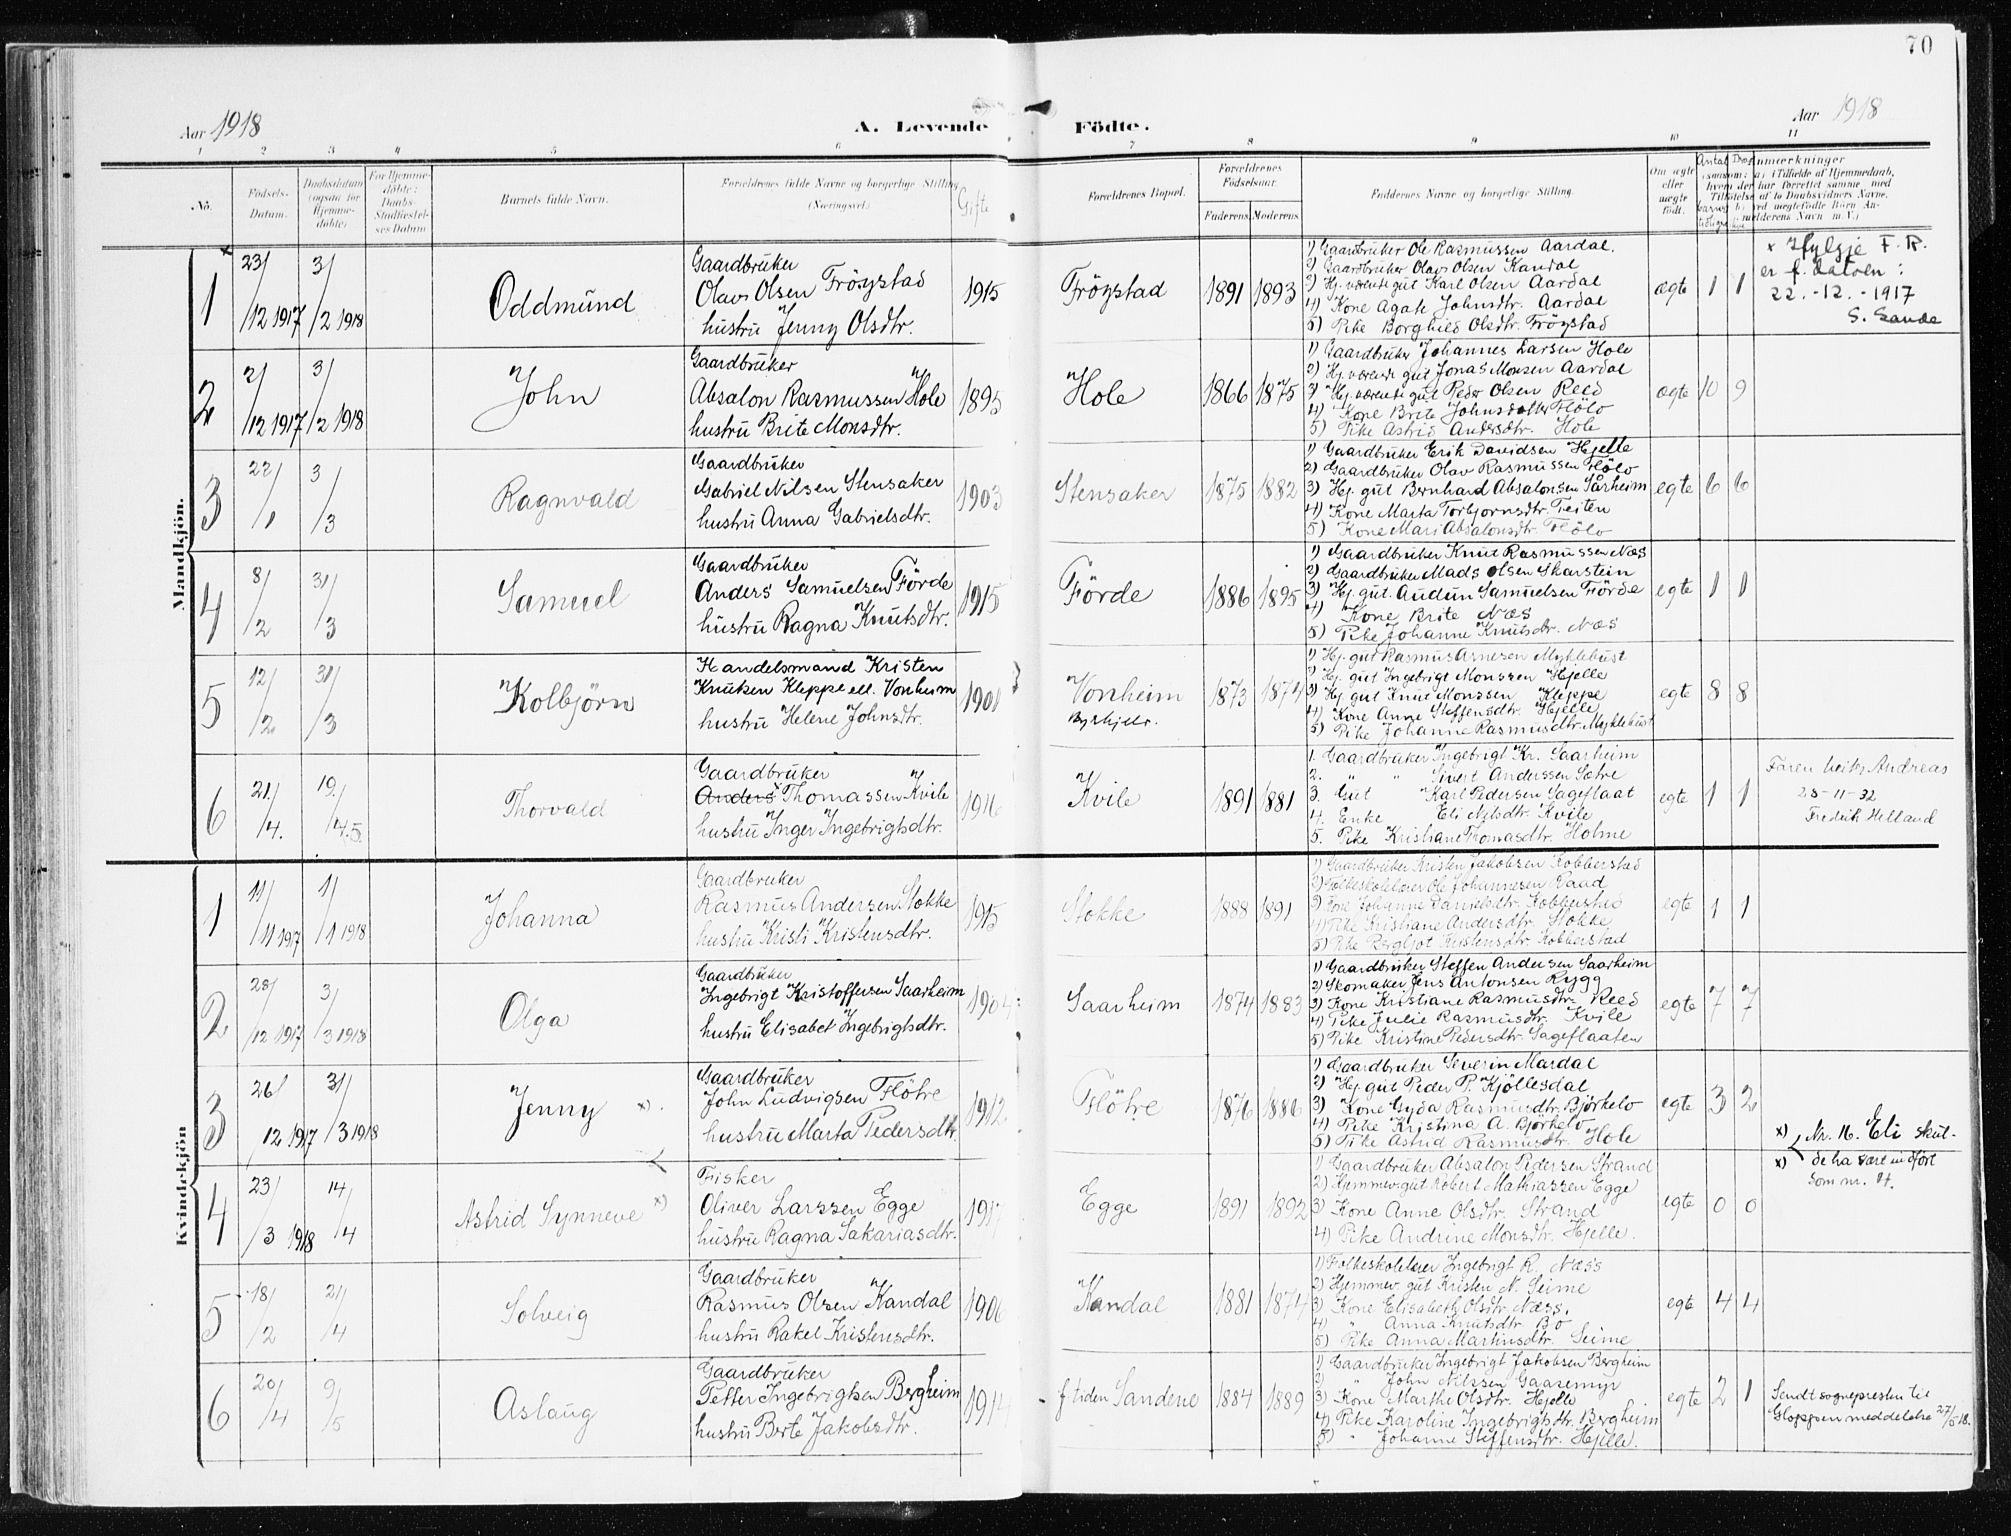 70
Aar 1918
A. Levende Födte.
Aar 1918
1 2 3 4 5 6 7 8 9 10 11
No.
Födsels-Datum.
Daabsdatum (ogsaa for Hjemmedöbte)
For Hjemmedöbte: Daabs-Stadfæstelses Datum
Barnets fulde Navn.
Forældrenes fulde Navne og borgerlige Stilling
(Næringsvei.)
Gifte
Forældrenes Bopæl.
Forældrenes Födselsaar.
Faderens. Moderens.
Faddernes Navne og borgerlige Stilling.
Om ægte eller uægte födt.
Mandkjön.
x 1
23/12 1917
3/2 1918
Oddmund
Gaardbruker
Olavs Olsen Fröystad
hustru Jenny Olsdtr.
1915
Fröystad
1891 1893
1) Gaardbruker Ole Rasmussen Aardal.
2) Gaardbruker Olavs Olsen Kandal
3) Hj. værende gut Karl Olsen Aardal
4) Kone Agate Johnsdtr. Aardal
5) Pike Borghild Olsdtr. Fröystad
ægte 1 1
x Ifylgje F. R.
er f. datoen:
22.-12.-1917
S. Sande
2
2/12 1917
3/2 1918
John
Gaardbruker
Absalon Rasmussen Hole
hustru Brite Monsdtr.
1895
Hole
1866 1875
1) Gaardbruker Johannes Larsen Hole
2) Hj. værende gut Jonas Monsen Aardal
3) Hj. værende gut Peder Olsen Reed
4) Kone Brite Johnsdatter Flölo
5) Pike Astrid Andersdtr. Hole
ægte 10 9
3
22/1
3/3
Ragnvald
Gaardbruker
Gabriel Nilsen Stensaker
hustru Anna Gabrielsdtr.
1903
Stensaker
1875 1882
1) Gaardbruker Erik Davidsen Hjelle
2) Gaardbruker Olav Rasmussen Flölo
3) Hj. gut Bernhard Absalonsen Sårheim
4) Kone Marta Torbjornsdtr. Teiten
5) Kone Mari Absalonsdtr. Flölo
egte 6 6
4
8/2
31/3
Samuel
Gaardbruker
Anders Samuelsen Förde
hustru Ragna Knutsdtr.
1915
Förde
1886 1895
1) Gaardbruker Knut Rasmussen Næs
2) Gaardbruker Mads Olsen Skarstein
3) Hj. gut. Audun Samuelsen Förde
4) Kone Brite Næs
5) Pike Johanne Knutsdtr. Næs
egte 1 1
5
12/2
31/3
Kolbjörn
Handelsmand Kristen
Knutsen Kleppe ell. Vonheim
hustru Helene Johnsdtr.
1901
Vonheim
Byrkjelo.
1873 1874
1) Hj. gut Rasmus Arnesen Myklebust
2) Hj. gut Ingebrigt Monssen Hjelle
3) Hj gut Knut Monssen Kleppe
4) Kone Anne Steffensdtr. Hjelle
5) Pike Johanne Rasmusdtr. Myklebust
egte 8 8
6
21./4.
19./4.5.
Thorvald
Gaardbruker
Anders Thomassen Kvile
hustru Inger Ingebrigtsdtr.
1916
Kvile
1891 1881
1. Gaardbruker Ingebrigt Kr. Saarheim
2. " " Sivert Anderssen Sætre
3. Gut Karl Pedersen Sageflaat
4. Enke Eli Nilsdtr. Kvile
5. Pike Kristiane Thomasdtr. Holme
egte 1 1
Faren heiter Andreas
28-11-32
Fredrik Helland
Kvindekjön
1
11/11 1917
1/1 1918
Johanna
Gaardbruker
Rasmus Andersen Stokke
hustru Kristi Kristensdtr.
1915
Stokke
1888 1891
1) Gaardbruker Kristen Jakobsen Kobberstad
2) Folkeskolelærer Ole Johannesen Raad
3) Kone Johanne Danielsdtr. Kobberstad
4) Pike Kristiane Andersdtr. Stokke
5) Pike Bergljot Kristensdtr. Kobberstad
egte 1 1
2
28/12 1917
3/3 1918
Olga
Gaardbruker
Ingebrigt Kristoffersen Saarheim
hustru Elisabet Ingebrigtsdtr.
1904
Saarheim
1874 1883
1) Gaardbruker Steffen Andersen Saarheim
2) Skomaker Jens Antonsen Rygg
3) Kone Kristiane Rasmusdtr. Reed
4) Pike Julie Rasmusdtr. Kvile
5) Pike Kristine Pedersdtr. Sageflaaten
egte 7 7
3
26/12 1917
31/3 1918
Jenny x).
Gaardbruker
John Ludvigsen Flöhre
hustru Marta Pedersdtr.
1912
Flöhre
1876 1886
1) Gaardbruker Severin Mardal
2) Hj. gut Peder P. Kjöllesdal
3) Kone Gyda Rasmusdtr. Björkelo
4) Pike Kristina A. Björkelo
5) Pike Astrid Rasmusdtr. Hole
egte 3 2
x) Nr. 16. Eli skul-
x) de ha vært indfört
som nr. 4.
4
23/3 1918
14/4
Astrid Synneve x)
Fisker
Oliver Larssen Egge
hustru Ragna Sakariasdtr.
1917
Egge
1891 1892
1) Gaardbruker Absalon Pedersen Strand
2) Hjemmev. gut Robert Mathiassen Egge
3) Kone Anne Olsdtr. Strand
4) Pike Andrine Monsdtr. Hjelle.
egte 0 0
5
18/2
21/4
Solveig
Gaardbruker
Rasmus Olsen Kandal
hustru Rakel Kristensdtr.
1906
Kandal
1881 1874
1) Folkeskolelærer Ingebrigt R. Næss
2) Hjemmev. gut Kristen N. Seime
3) Kone Elisabeth Olsdtr. Næss.
4) " Anna Knutsdtr. Bö
5) Pike Anna Martinsdtr. Seime
egte 4 4
6
20/4
9/5
Aslaug
Gaardbruker
Petter Ingebrigtsen Bergheim
hustru Berte Jakobsdtr.
1914
f tiden Sandene
1884 1889
1) Gaardbruker Ingebrigt Jakobsen Bergheim
2) " John Nilssen Gaasemyr
3) Kone Marthe Olsdtr. Hjelle
4) Pike Karoline Ingebrigtsdtr. Bergheim
5) " Johanne Steffensdtr. Hjelle.
egte 2 1
Sendt sognepresten til
Gloppen meddelelse 27/5 18.